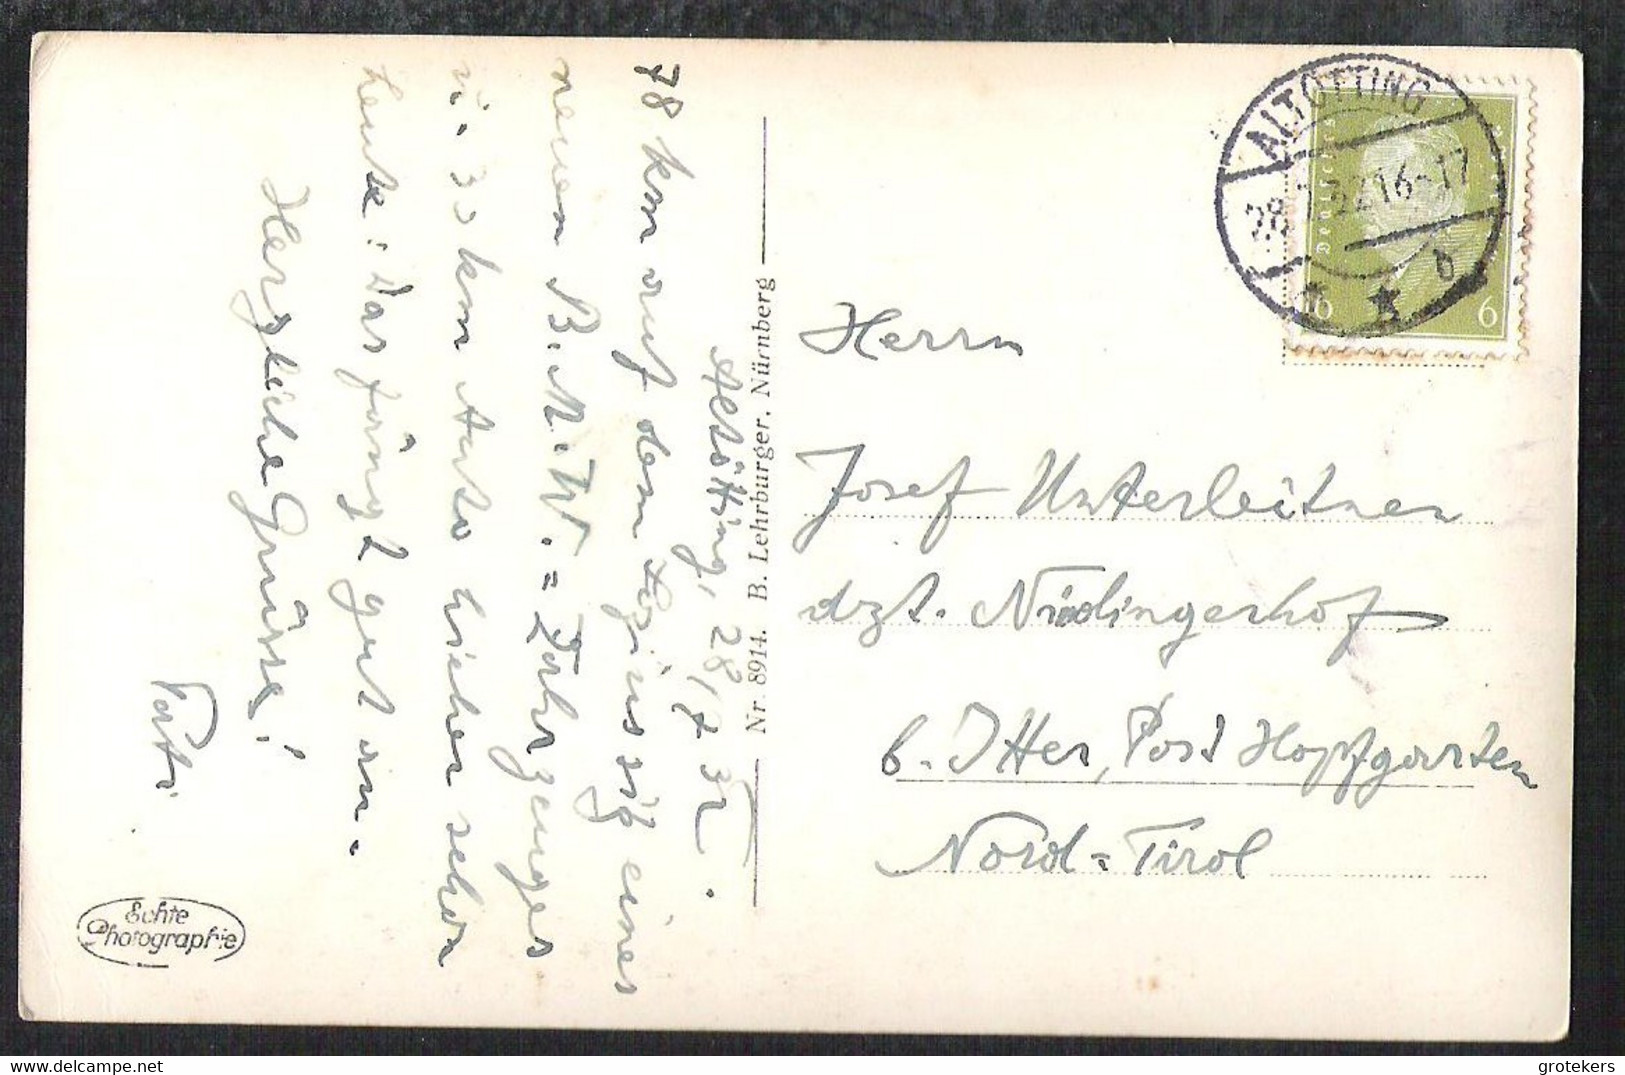 Altötting, 28.7.32.
78 km auf dem Soziussitz eines
neuen B.M.W.=Fahrzeuges
u. 33 km Auto bisher schon
heute: Das fängt gut an.
Herzliche Grüsse!
Nr. 8914. B. Lehrburger, Nürnberg
Echte
Photographie
ALTÖTTING
28. 32 16-17
b
Deutsches
6 6
Herrn
Josef Unterleitner
dzt. Nidlingerhof
b. Itter, Post Hopfgarten
Nord=Tirol
grotekers